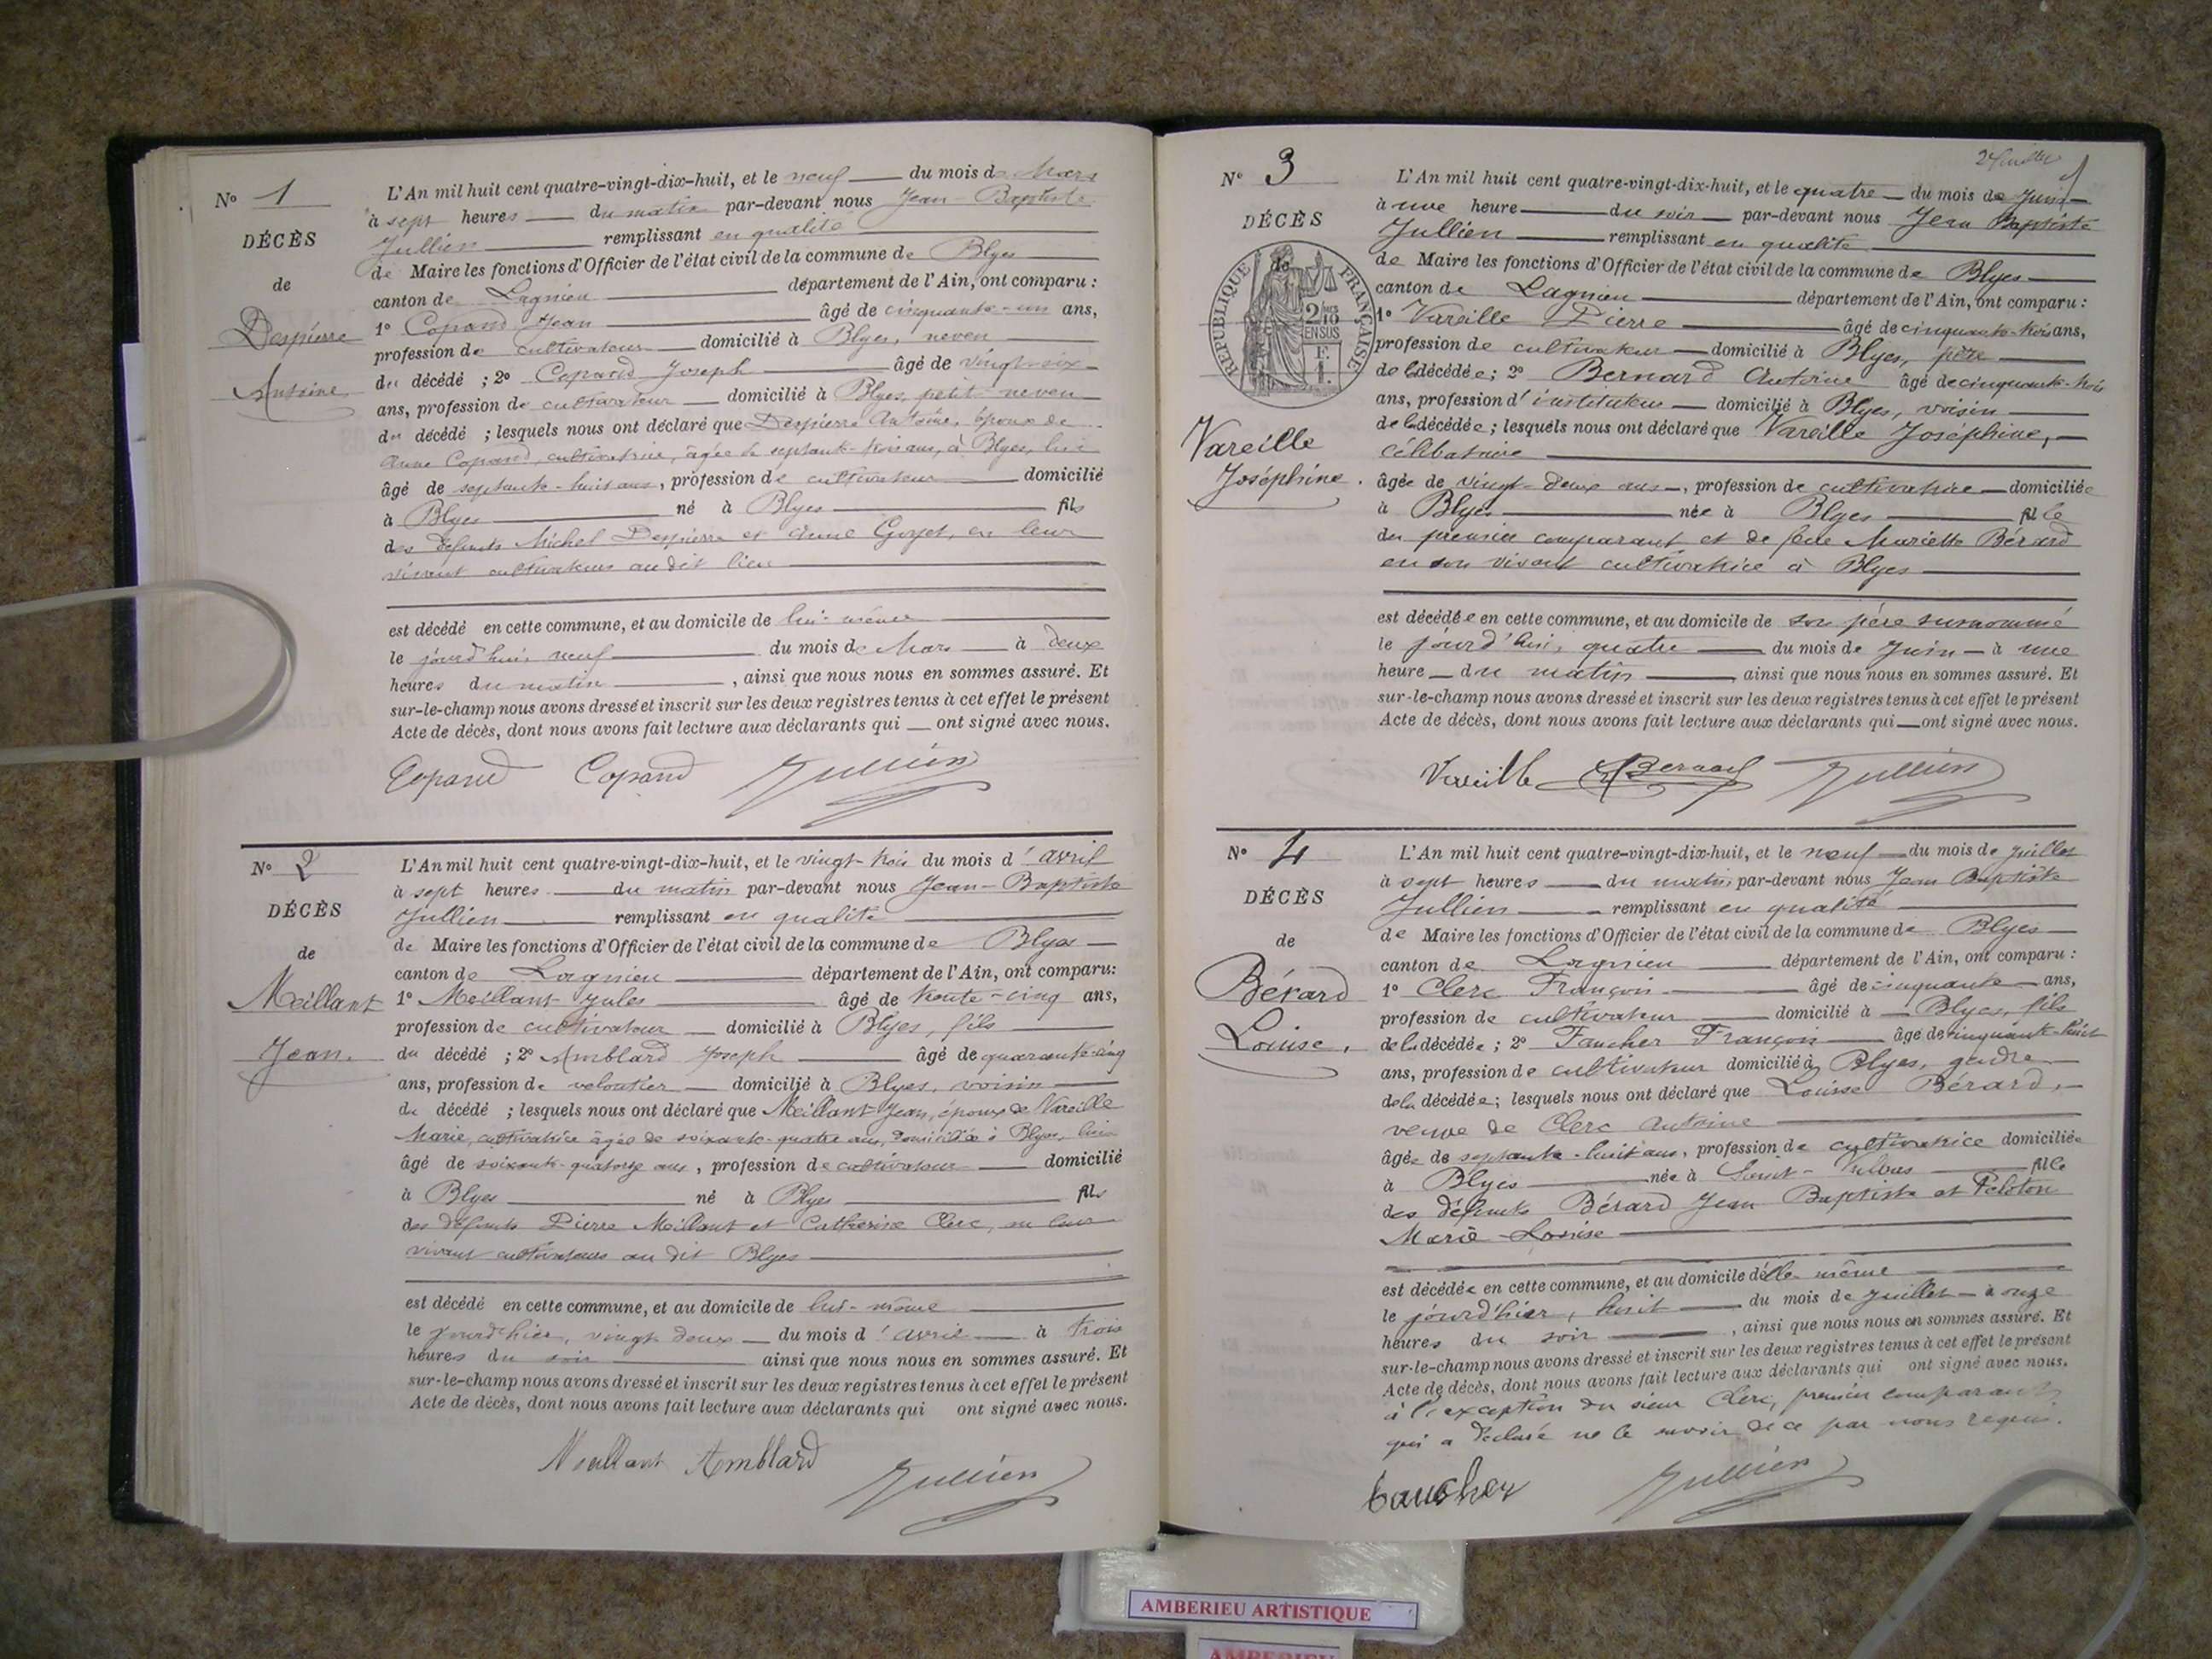 N° 1
DÉCÈS
de
Despierre
Antoine
L'An mil huit cent quatre-vingt-dix-huit, et le neuf du mois de Mars
à sept heures du matin par-devant nous Jean-Baptiste
Jullien remplissant en qualité
de Maire les fonctions d'Officier de l'état civil de la commune de Blyes
canton de Lagnieu département de l'Ain, ont comparu :
1° Copard Jean âgé de cinquante-un ans,
profession de cultivateur domicilié à Blyes, neveu
du décédé ; 2° Copard Joseph âgé de vingt-six
ans, profession de cultivateur domicilié à Blyes, petit-neveu
du décédé ; lesquels nous ont déclaré que Despierre Antoine, époux de
Anne Copard, cultivatrice, âgée de septante-trois ans, à Blyes, lui
âgé de septante-huit ans, profession de cultivateur domicilié
à Blyes né à Blyes fils
des défunts Michel Despierre et Anne en leur
vivant cultivateurs au dit lieu
est décédé en cette commune, et au domicile de lui-même
le jourd'hui neuf du mois de Mars à deux
heures du matin, ainsi que nous nous en sommes assuré. Et
sur-le-champ nous avons dressé et inscrit sur les deux registres tenus à cet effet le présent
Acte de décès, dont nous avons fait lecture aux déclarants qui ont signé avec nous.
Copard Copard Jullien
N° 2
DÉCÈS
de
Meillant
Jean.
L'An mil huit cent quatre-vingt-dix-huit, et le vingt-trois du mois d'avril
à sept heures du matin par-devant nous Jean-Baptiste
Jullien remplissant en qualité
de Maire les fonctions d'Officier de l'état civil de la commune de Blyes
canton de Lagnieu département de l'Ain, ont comparu:
1° Meillant Jules âgé de trente-cinq ans,
profession de cultivateur domicilié à Blyes, fils
du décédé ; 2° Amblard Joseph âgé de quarante-cinq
ans, profession de veloutier domicilié à Blyes, voisin
du décédé ; lesquels nous ont déclaré que Meillant Jean, époux de Vareille
Marie, cultivatrice âgée de soixante-quatre ans, domiciliée à Blyes, lui
âgé de soixante-quatorze ans, profession de cultivateur domicilié
à Blyes né à Blyes fils
des défunts Pierre Meillant et Catherine Clerc, en leur
vivant cultivateurs au dit Blyes
est décédé en cette commune, et au domicile de lui-même
le jourd'hier, vingt deux du mois d'avril à trois
heures du soir ainsi que nous nous en sommes assuré. Et
sur-le-champ nous avons dressé et inscrit sur les deux registres tenus à cet effet le présent
Acte de décès, dont nous avons fait lecture aux déclarants qui ont signé avec nous.
Meillant Amblard Jullien
N° 3
DÉCÈS
de
REPUBLIQUE FRANÇAISE
2/10 EN SUS
Vareille
Joséphine.
L'An mil huit cent quatre-vingt-dix-huit, et le quatre du mois de Juin
à une heure du soir par-devant nous Jean Baptiste
Jullien remplissant en qualité
de Maire les fonctions d'Officier de l'état civil de la commune de Blyes
canton de Lagnieu département de l'Ain, ont comparu :
1° Vareille Pierre âgé de cinquante-trois ans,
profession de cultivateur domicilié à Blyes, père
de la décédée ; 2° Bernard Antoine âgé de cinquante-trois
ans, profession d'instituteur domicilié à Blyes, voisin
de la décédée ; lesquels nous ont déclaré que Vareille Joséphine,
célibataire
âgée de vingt-deux ans, profession de cultivatrice domiciliée
à Blyes née à Blyes fille
du premier comparant et de feue Mariette Bérard
en son vivant cultivatrice à Blyes
est décédée en cette commune, et au domicile de son père surnommé
le jourd'hui, quatre du mois de Juin à une
heure du matin ainsi que nous nous en sommes assuré. Et
sur-le-champ nous avons dressé et inscrit sur les deux registres tenus à cet effet le présent
Acte de décès, dont nous avons fait lecture aux déclarants qui ont signé avec nous.
Vareille ABernard Jullien
N° 4
DÉCÈS
de
Bérard
Louise.
L'An mil huit cent quatre-vingt-dix-huit, et le neuf du mois de juillet
à sept heures du matin par-devant nous Jean Baptiste
Jullien remplissant en qualité
de Maire les fonctions d'Officier de l'état civil de la commune de Blyes
canton de Lagnieu département de l'Ain, ont comparu :
1° Clerc François âgé de cinquante ans,
profession de cultivateur domicilié à Blyes, fils
de la décédée ; 2° Faucher François âgé de cinquante-huit
ans, profession de cultivateur domicilié à Blyes, gendre
de la décédée ; lesquels nous ont déclaré que Louise Bérard,
veuve de Clerc Antoine
âgée de septante-huit ans, profession de cultivatrice domiciliée
à Blyes née à Saint-Vulbas fille
des défunts Bérard Jean Baptiste et Peloton
Marie-Louise
est décédée en cette commune, et au domicile d'elle-même
le jourd'hier, huit du mois de juillet à onze
heures du soir, ainsi que nous nous en sommes assuré. Et
sur-le-champ nous avons dressé et inscrit sur les deux registres tenus à cet effet le présent
Acte de décès, dont nous avons fait lecture aux déclarants qui ont signé avec nous.
à l'exception du sieur Clerc, premier comparant
qui a déclaré ne le savoir de ce par nous requis.
Faucher Jullien
AMBERIEU ARTISTIQUE
AMBERIEU